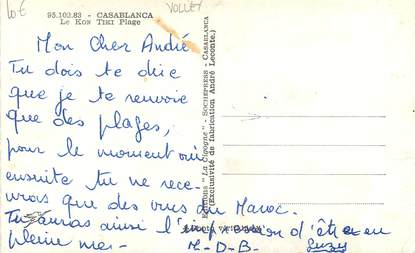 10€
VOLLEY
95.102.83 - CASABLANCA
Le Kon Tiki Plage
Mon Cher André
Tu dois te dire
que je te renvoie
que des plages,
pour le moment oui
ensuite tu ne rece-
vrais que des vues du Maroc.
Tu auras ainsi l'impression d'être en
pleine mer-
M-D-B- Suzy
Editions "La Cigogne" - SOCHEPRESS - CASABLANCA
(Exclusivité de fabrication André Leconte.)